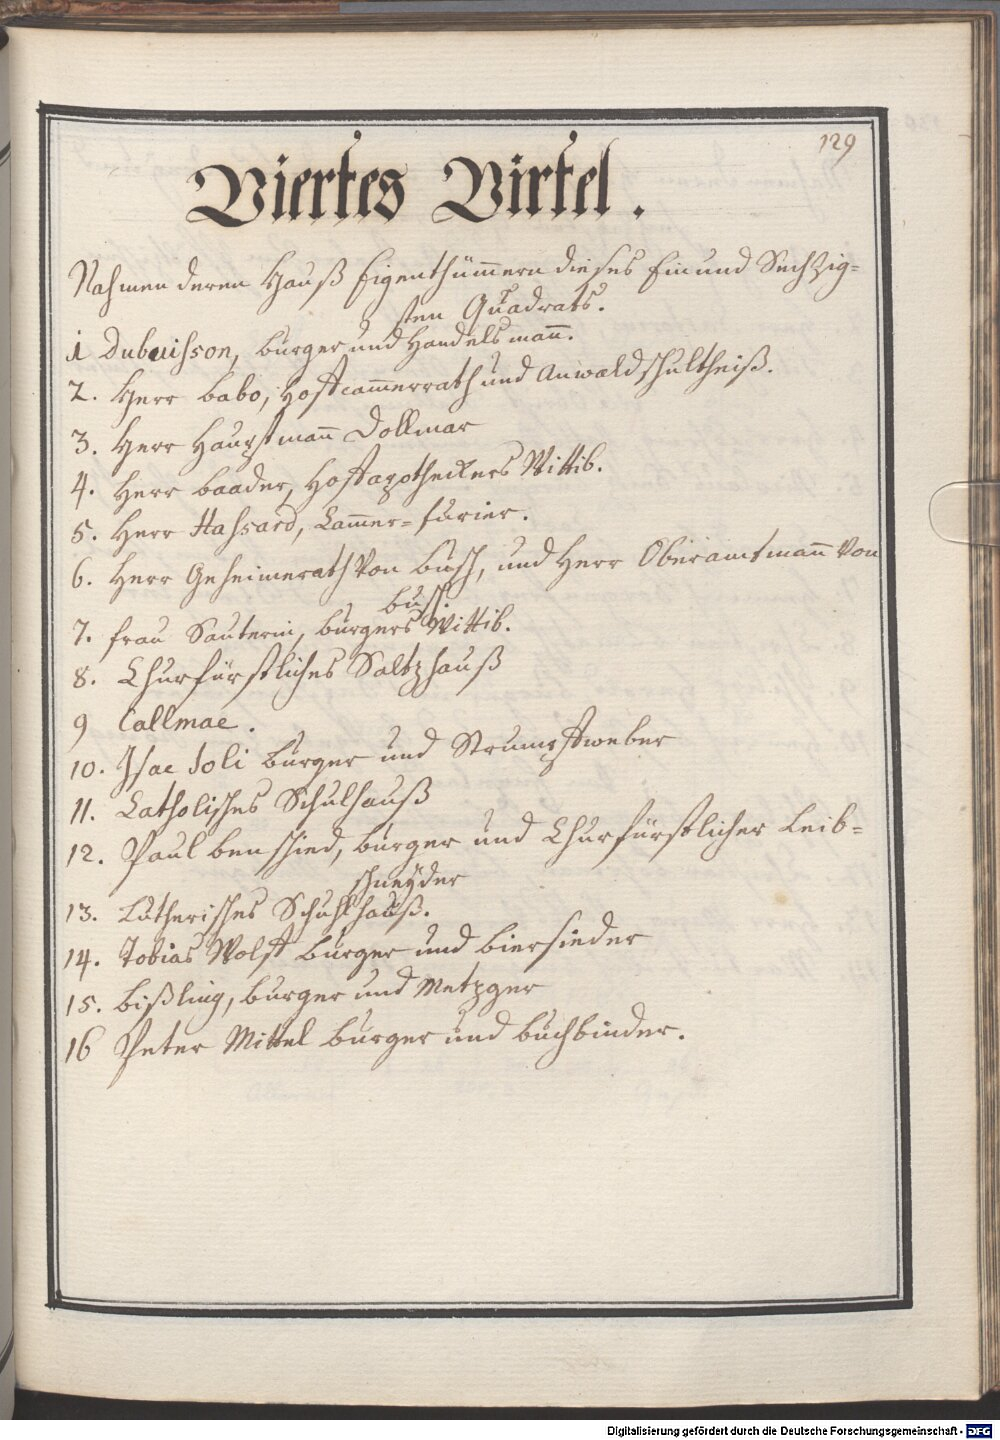 129
Viertes Virtel.
Nahmen deren Hauß Eigenthümmern dieses Ein und Sechzig=
sten Quadrats.
1 Dubuisson, burger und Handelsmañ.
2. Herr babo, Hoffcam̃errath und Anwaldschultheiß.
3. Herr Hauptmañ Dollmar
4. Herr baader, Hoffapotheckers Wittib.
5. Herr Hassard, Cam̃er=furier.
6. Herr Geheimerath Von busch, und Herr Oberamtmañ Von
busch
7. frau Sauterin, burgers Wittib.
8. Churfürstliches Saltzhauß
9 Callmae.
10. Isac Joli burger und Strumpffweber
11. Catholisches Schulhauß
12. Paul benschied, burger und Churfürstlicher Leib=
schneyder
13. Lutherisches Schuhlhauß.
14. Tobias Wolff burger und biersieder
15. bißling, burger und Metzger
16 Peter Mittel burger und buchbinder.
Digitalisierung gefördert durch die Deutsche Forschungsgemeinschaft - DFG